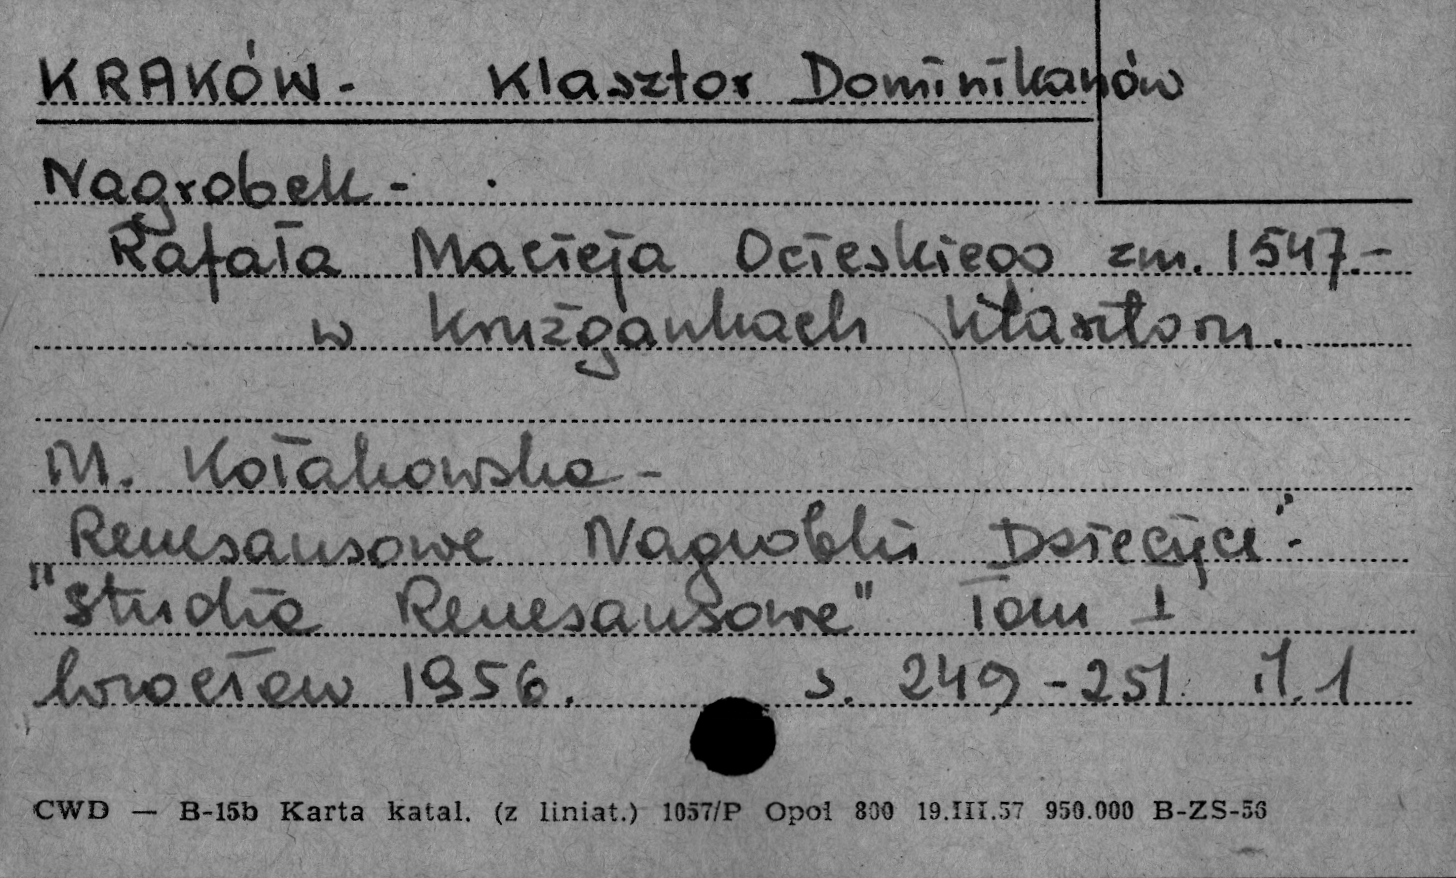 KRAKÓW - Klasztor Dominikanów
Nagrobek -
Rafała Macieja Ocieskiego zm. 1547.-
w krużgankach klasztoru.
M. Kołakowska -
Renesansowe Nagrobki Dziecięce.-
"Studia Renesansowe" Tom I
Wrocław 1956. s. 249-251. il. 1
CWD — B-15b Karta katal. (z liniat.) 1057/P Opol 800 19.III.57 950.000 B-ZS-56